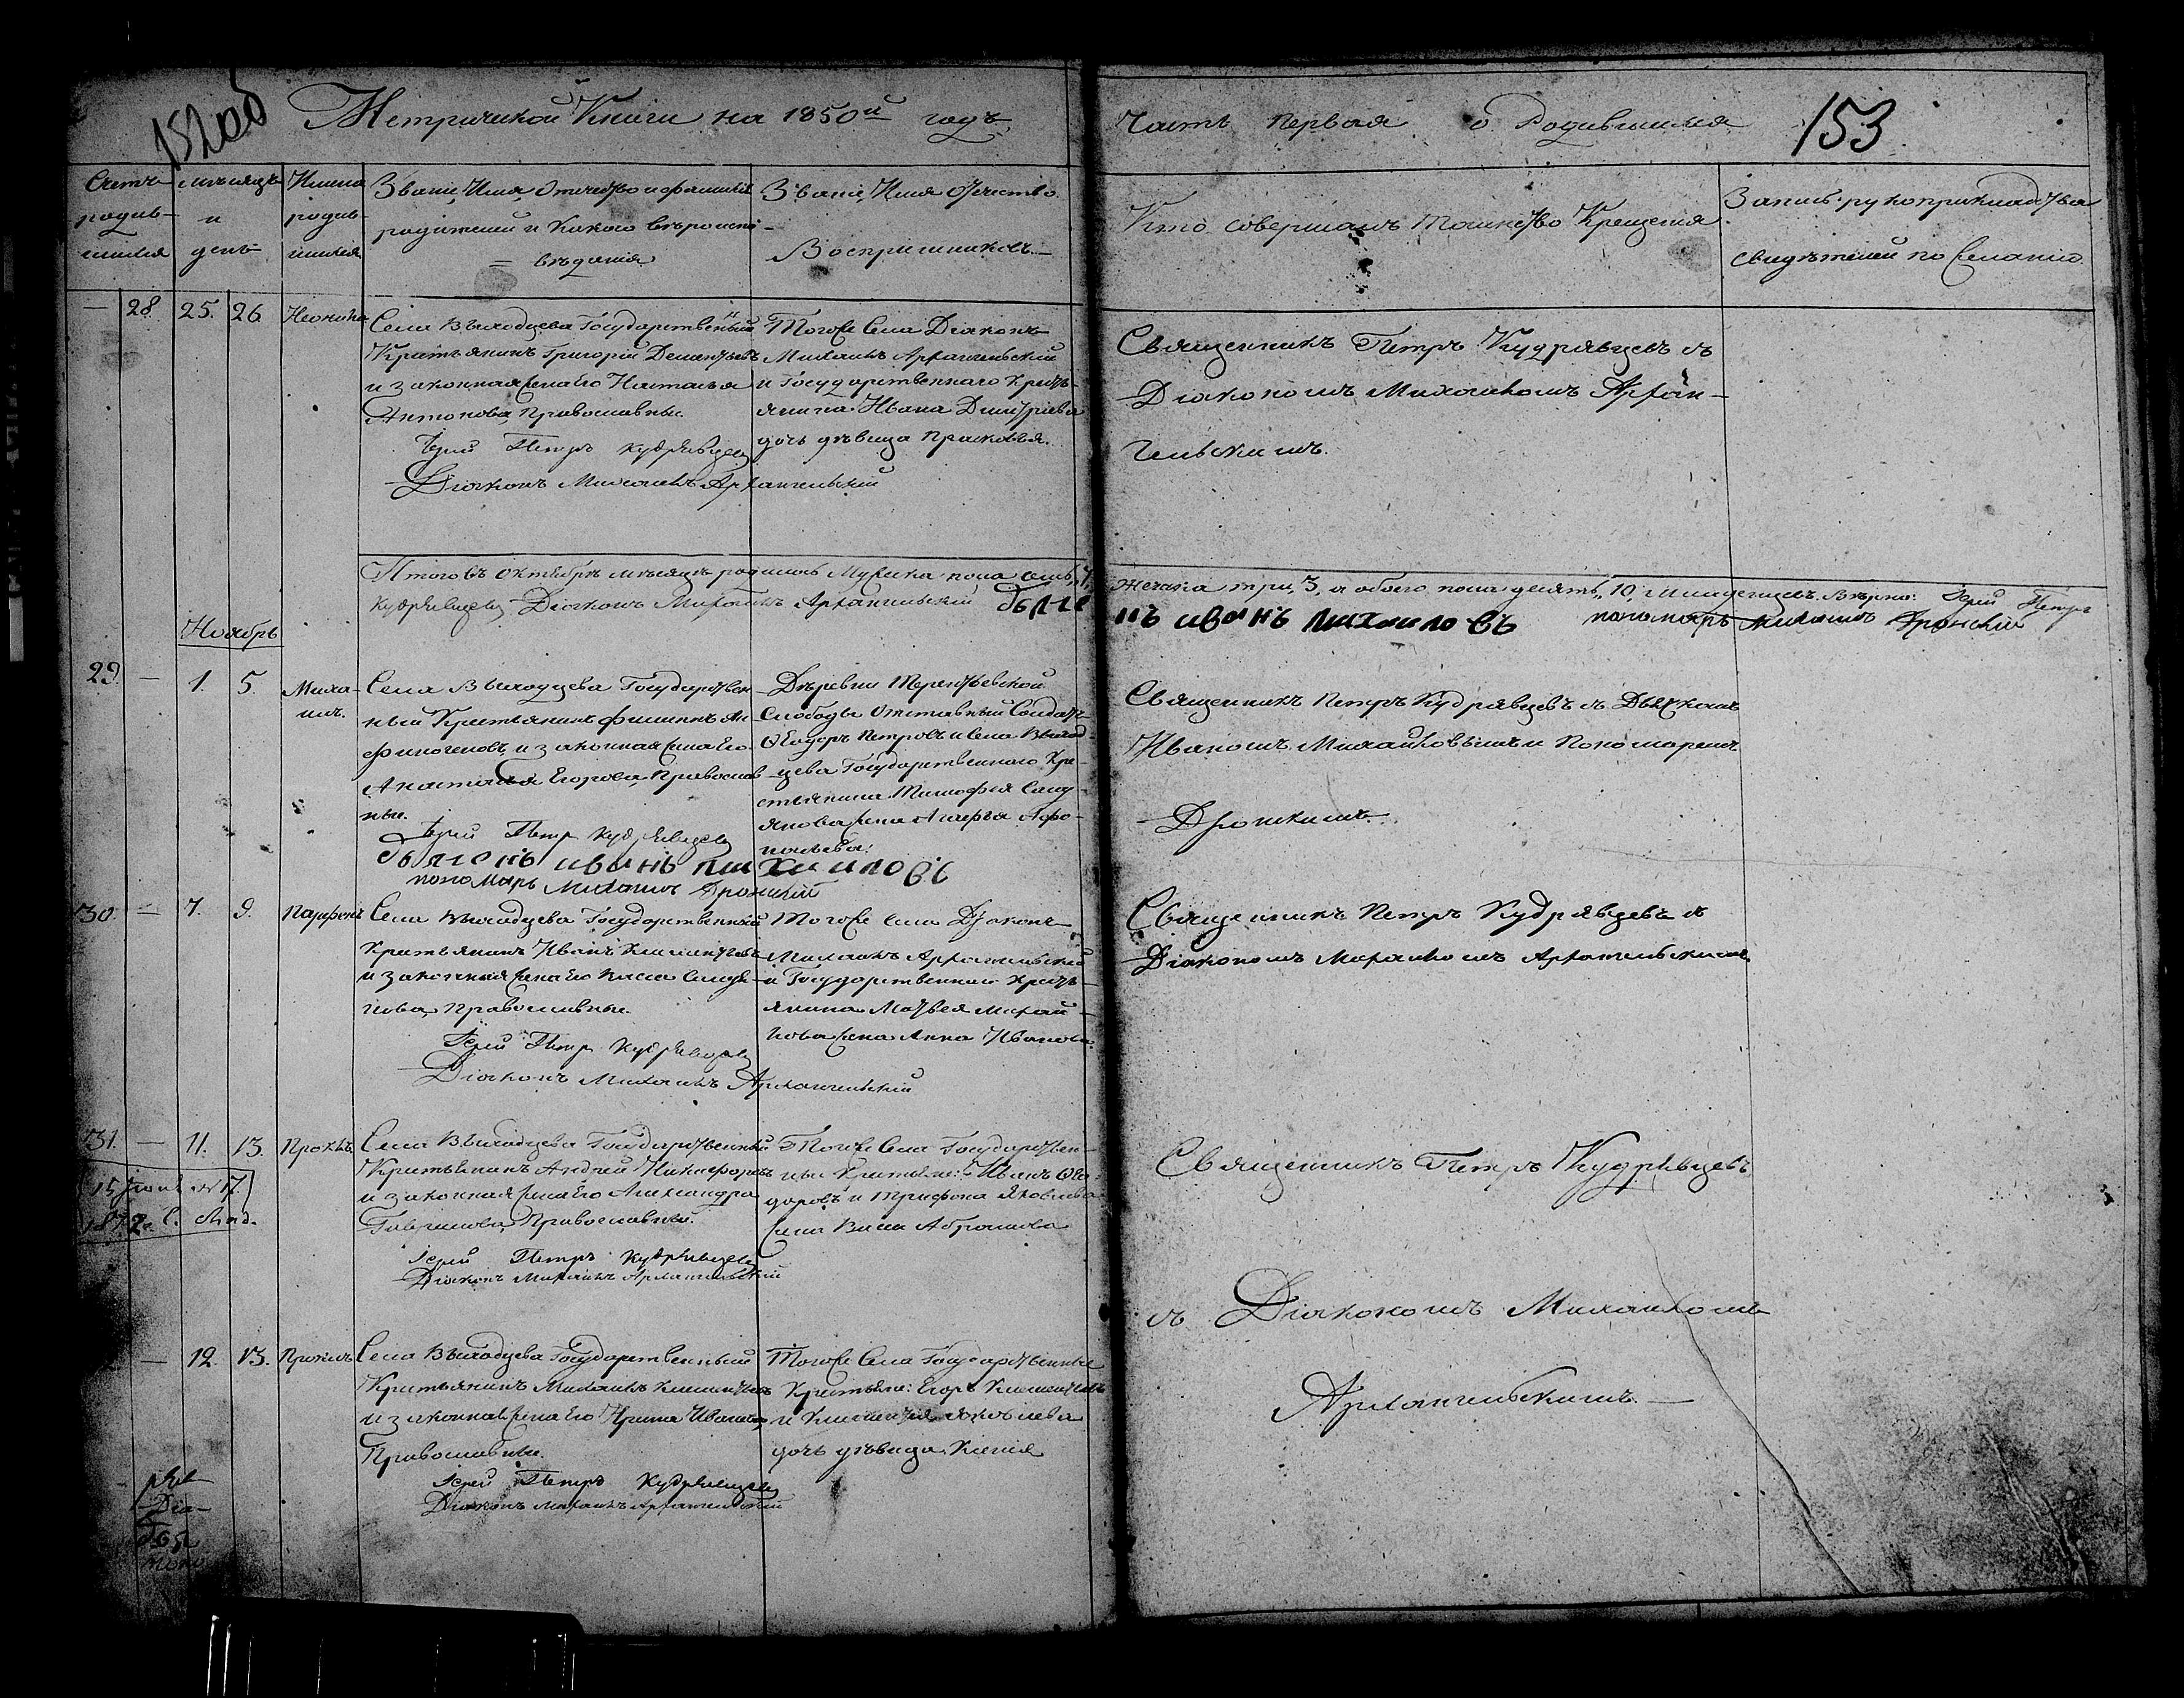 152об
Метрической Книги на 1850й годъ
Часть первая о Родившихся
153
Счетъ родив- шихся
мѣсяцъ и день
Имена родив- шихся
Званіе, Имя, Отчество и фамилія
родителей и Какого вѣроиспо-
= вѣданія
Званіе, Имя Отчество.
Воспріемниковъ.
Кто совершалъ Таинство Крещенія
Запись рукоприкладства
свидѣтелей по Желанію.
— 28 25. 26 Неонила
Села Выходцева Государственный
Крестьянинъ Григорій Дементьевъ
и законная жена Его Наталья
Антонова, Православные.
Іерей Петръ Кудрявцевъ
Діаконъ Михаилъ Архангельскій
Тогоже Села Діаконъ
Михаилъ Архангельскій
и Государственнаго Кресть-
янина Ивана Дмитріева
дочь дѣвица Прасковья.
Священникъ Петръ Кудрявцевъ съ
Діакономъ Михаиломъ Архан-
гельскимъ.
Итого въ Октябрѣ мѣсяцѣ родилось Мужеска пола семь, 7.
женска три, 3, а обоего пола десять, 10, младенцевъ. Вѣрно: Іерей Петръ
Кудрявцевъ Діаконъ Михаилъ Архангельскій дьяче
нъ иванъ михаиловъ пономарь Михаилъ Дронскій
Ноябрь
29. — 1. 5. Миха- илъ.
Села Выходцева Государствен-
ный Крестьянинъ Филиппъ Ан-
финогеновъ и законная жена Его
Анастасія Егорова, Православ-
ные.
Іерей Петръ Кудрявцевъ
дьячокъ иванъ михаиловъ
пономарь Михаилъ Дронскій
Деревни Терентьевской
Слободы Отставный Солдатъ
Ѳеодоръ Петровъ и Села Выход-
цева Государственнаго Кре-
стьянина Тимофея
жена
Священникъ Петръ Кудрявцевъ съ Дьячкомъ
Иваномъ Михайловымъ и Пономаремъ
Дронскимъ.
30. — 7. 9. Парфенъ
Села Выходцева Государственный
Крестьянинъ Иванъ Климентьевъ
и законная жена Его
Православные.
Іерей Петръ Кудрявцевъ
Діаконъ Михаилъ Архангельскій
Тогоже Села Діаконъ
Михаилъ Архангельскій
и Государственнаго Кресть-
янина Матвея Михай-
лова жена Анна Иванова.
Священникъ Петръ Кудрявцевъ съ
Діакономъ Михаиломъ Архангельскимъ.
31. — 11. 13. Прохлъ
15 Іюня № 17.
1872 г.
Села Выходцева Государственный
Крестьянинъ Андрей Никифоровъ
и законная жена Его Александра
Гаврилова, Православные.
Іерей Петръ Кудрявцевъ
Діаконъ Михаилъ Архангельскій
Тогоже Села Государствен-
ные Крестьяне: Иванъ Ѳео-
доровъ и Трифона Яковлева
жена Васса Абрамова
Священникъ Петръ Кудрявцевъ
съ Діакономъ Михаиломъ
Архангельскимъ. —
— 12. 13.
Села Выходцева Государственный
Крестьянинъ Михаилъ Климентьевъ
и законная жена Его Ирина Иванова,
Православные.
Іерей Петръ Кудрявцевъ
Діаконъ Михаилъ Архангельскій
Тогоже Села Государственные
Крестьяне: Егоръ Климентьевъ
и Климентія Яковлева
дочь дѣвица Ксенія